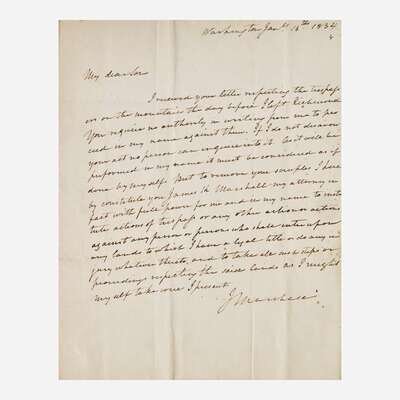 Washington Jan. 14th 1834
My dear Son
I received your letter respecting the trespass
ers on the mountain the day before I left Richmond
You require no authority in writing from me to pro
ceed in my name against them. If I do not disavow
your act no person can inquire into it. As it will be
performed in my name it must be considered as if
done by myself. But to remove your scruples I here
by constitute you James K Marshall my attorney in
fact with full power for me and in my name to insti
tute actions of trespass or any other action or actions
against any person or persons who shall enter upon
any lands to which I have a legal title or do any inj
jury whatever thereto, and to take all such steps or
proceedings respecting the said lands as I might
myself take were I present
J Marshall